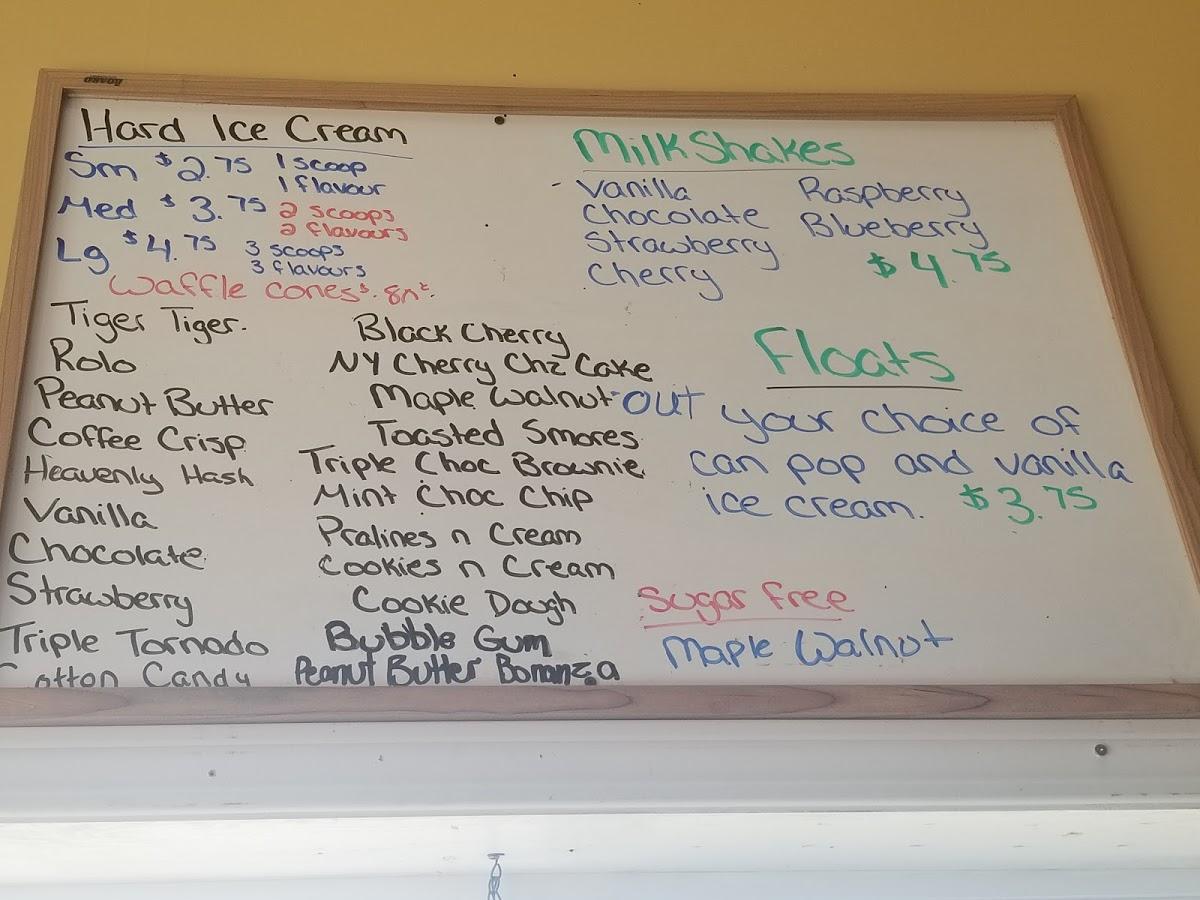 Hard Ice Cream
Sm $2.75 1 scoop
1 flavour
Med $3.75 2 scoops
2 flavours
Lg $4.75 3 scoops
3 flavours
Waffle cones
Tiger Tiger.
Rolo
Peanut Butter
Coffee Crisp
Heavenly Hash
Vanilla
Chocolate
Strawberry
Triple Tornado
Cotton Candy
Black Cherry
NY Cherry Chz Cake
Maple Walnut - OUT
Toasted Smores
Triple Choc Brownie
Mint Choc Chip
Pralines n Cream
Cookies n Cream
Cookie Dough
Bubble Gum
Peanut Butter Bonanza
MilkShakes
- Vanilla
Chocolate
Strawberry
Cherry
Raspberry
Blueberry
$4.75
Floats
your choice of
can pop and vanilla
ice cream. $3.75
Sugar free
Maple Walnut